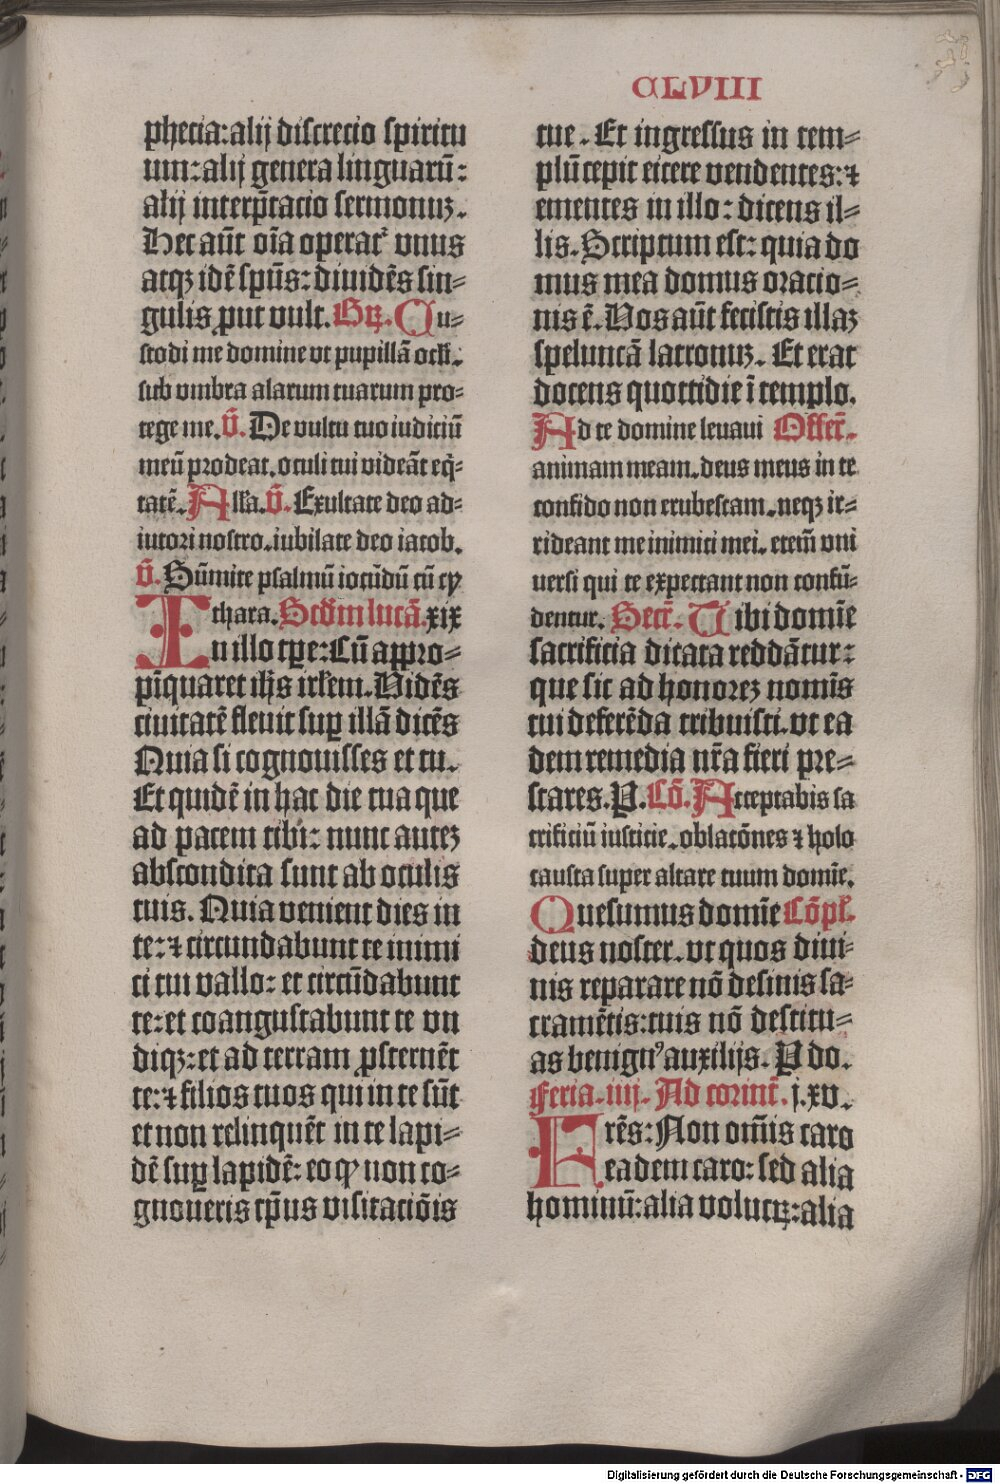 CLVIII
phecia: alij discrecio spiritu
um: alij genera linguarū:
alij interp̄tacio sermonuꝫ.
Hec aūt oīa operat᷑ vnus
atqꝫ idē sp̄us: diuidēs sin⸗
gulis ꝓut vult. Gꝝ. Cu⸗
stodi me domine vt pupillā oc̄li.
sub vmbra alarum tuarum pro⸗
tege me. V̄. De vultu tuo iudiciū
meū prodeat. oculi tui videāt eq̄⸗
tatē. All̄a. V̄. Exultate deo ad⸗
iutori nostro. iubilate deo iacob.
V̄. Sūmite psalmū iocūdū cū cy
thara. Scd̄m lucā. xix
In illo tꝑe: Cū appro⸗
pīquaret ih̄s irl̄em. Vidēs
ciuitatē fleuit suꝑ illā dicēs
Quia si cognouisses et tu.
Et quidē in hac die tua que
ad pacem tibi: nunc auteꝫ
abscondita sunt ab oculis
tuis. Quia venient dies in
te: ⁊ circundabunt te inimi
ci tui vallo: et circūdabunt
te: et coangustabunt te vn
diqꝫ: et ad terram ꝓsternēt
te: ⁊ filios tuos qui in te sūt
et non relinquēt in te lapi⸗
dē suꝑ lapidē: eo ꝙ non co⸗
gnoueris tp̄us visitaciōis
tue. Et ingressus in tem⸗
plū cepit eicere vendentes: ⁊
ementes in illo: dicens il⸗
lis. Scriptum est: quia do
mus mea domus oracio⸗
nis ē. Vos aūt fecistis illaꝫ
speluncā latronuꝫ. Et erat
docens quottidie ī templo.
Ad te domine leuaui Offer̄.
animam meam. deus meus in te
confido non erubescam. neqꝫ ir⸗
rideant me inimici mei. etem̄ vni
uersi qui te expectant non confū⸗
dentur. Secr̄. Tibi domīe
sacrificia dicata reddātur:
que sic ad honoreꝫ nomīs
tui deferēda tribuisti. vt ea
dem remedia nr̄a fieri pre⸗
stares. P. Cō. Acceptabis sa
crificiū iusticie. oblatōnes ⁊ holo
causta super altare tuum domīe.
Quesumus domīe Cōpl̄.
deus noster. vt quos diui⸗
nis reparare nō desinis sa⸗
cramētis: tuis nō destitu⸗
as benignꝰ auxilijs. P do.
Feria. iiij. Ad corint̄. j. xv.
Frēs: Non om̄is caro
eadem caro: sed alia
hominū: alia volucꝝ: alia
Digitalisierung gefördert durch die Deutsche Forschungsgemeinschaft - DFG